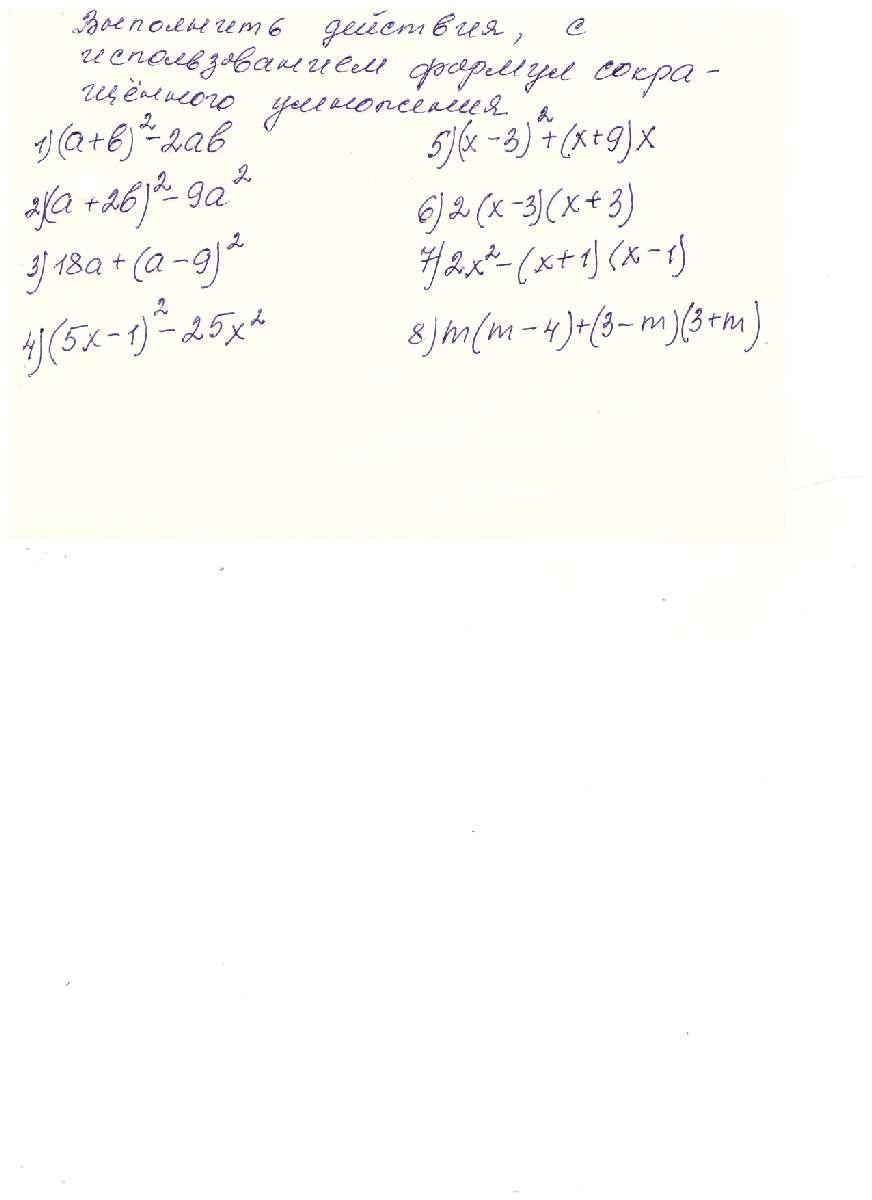 Выполнить действия, с
использованием формул сокра-
щённого умножения
1) (a+b)² - 2ab
2) (a+2b)² - 9a²
3) 18a + (a-9)²
4) (5x-1)² - 25x²
5) (x-3)² + (x+9)x
6) 2(x-3)(x+3)
7) 2x² - (x+1)(x-1)
8) m(m-4)+(3-m)(3+m)